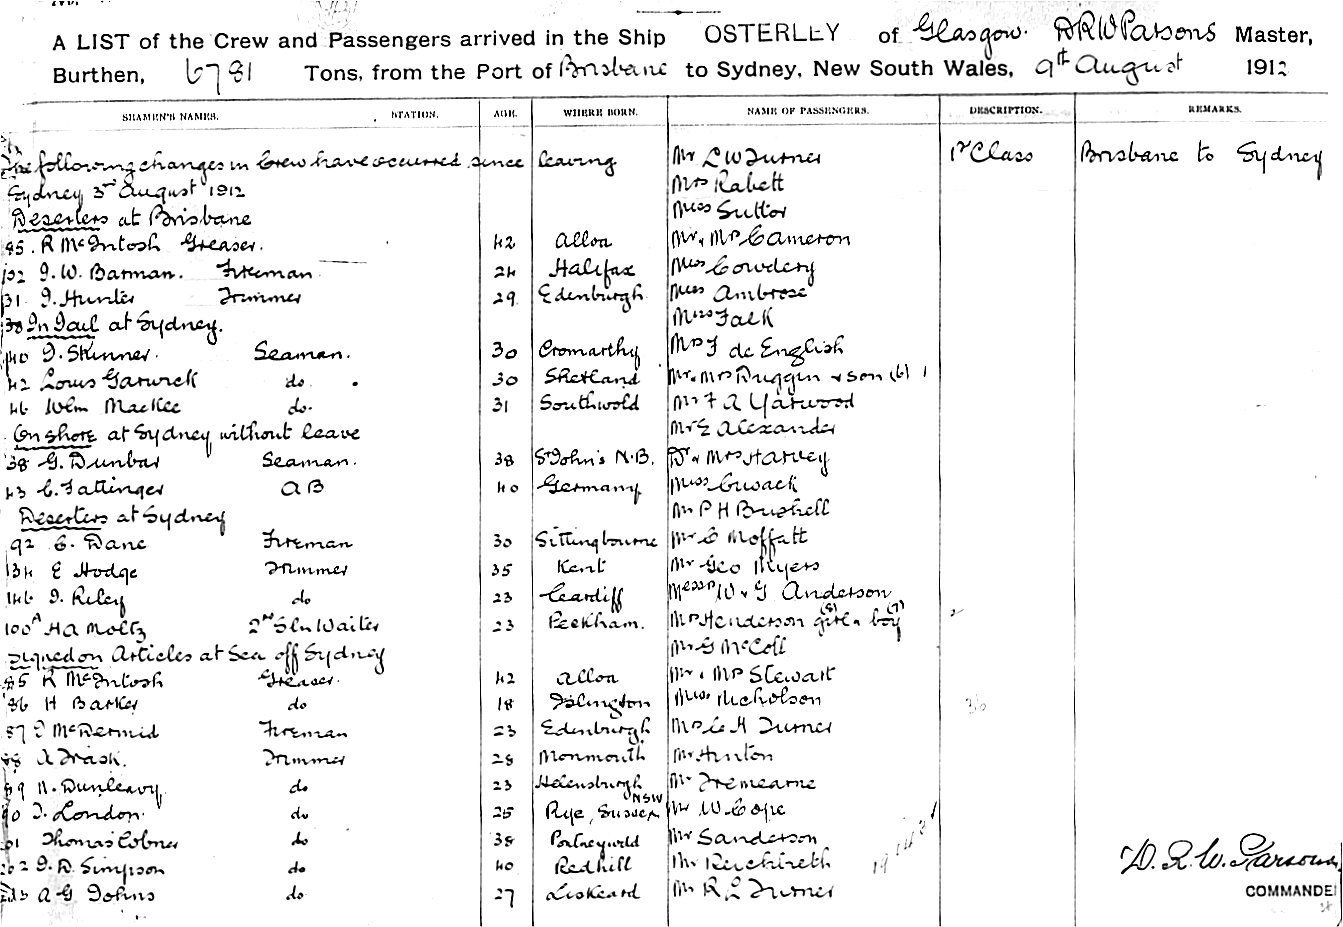 A LIST of the Crew and Passengers arrived in the Ship OSTERLEY of Glasgow. D R W Parsons Master,
Burthen, 6781 Tons, from the Port of Brisbane to Sydney, New South Wales, 9th August 1912
SEAMEN'S NAMES. STATION. AGE. WHERE BORN. NAME OF PASSENGERS. DESCRIPTION. REMARKS.
The following changes in Crew have occurred since leaving Mr L W Turner 1st Class Brisbane to Sydney
Sydney 3rd August 1912 Mrs Rabett
Deserters at Brisbane Miss Suttor
95. R McIntosh Greaser. 42 Alloa Mr & Mrs Cameron
132 J. W. Barman. Fireman 24 Halifax Miss Cowdery
131 J. Hunter Trimmer 29 Edinburgh Miss Ambrose
In Jail at Sydney. Miss Falk
40 J. Skinner. Seaman. 30 Cromarthy Mrs F de English
42 Louis Garwick do. 30 Shetland Mr & Mrs Duggin & son (6) 1
46 Wlm MacKee do. 31 Southwold Mr F A Yarwood
On shore at Sydney without leave Mr E Alexander
38 G. Dunbar Seaman. 38 St John's N.B. Dr & Mrs Harvey
43 C. Fattinger AB 40 Germany Miss Cusack
Deserters at Sydney Mr P H Bushell
92 C. Dane Fireman 30 Sittingbourne Mr C Moffatt
134 E Hodge Trimmer 35 Kent Mr Geo Myers
146 J. Riley do 23 Cardiff Messrs W & G Anderson
100A H A Moltz 2nd Sln Waiter 23 Peckham. Mrs Henderson girl (8) & boy (7)
Signed on Articles at Sea off Sydney Mr G McColl
95 R McIntosh Greaser. 42 Alloa Mr & Mrs Stewart
86 H Barker do 18 Islington Miss Nicholson 36
87 McDermid Fireman 23 Edenburgh Mrs C H Turner
88 A Trask. Trimmer 28 Monmouth Mr Hinton
89 N. Dunleavy do 23 Helensburgh Mr Tremearne
90 J. London. do 25 Rye, Sussex NSW Mr W Cope
201 Thomas Cobner do 38 Mr Sanderson
202 J. D. Simpson do 40 Redhill Mr D. R. W. Parsons
A G Johns do 27 Liskeard Mr R L Turner COMMANDE